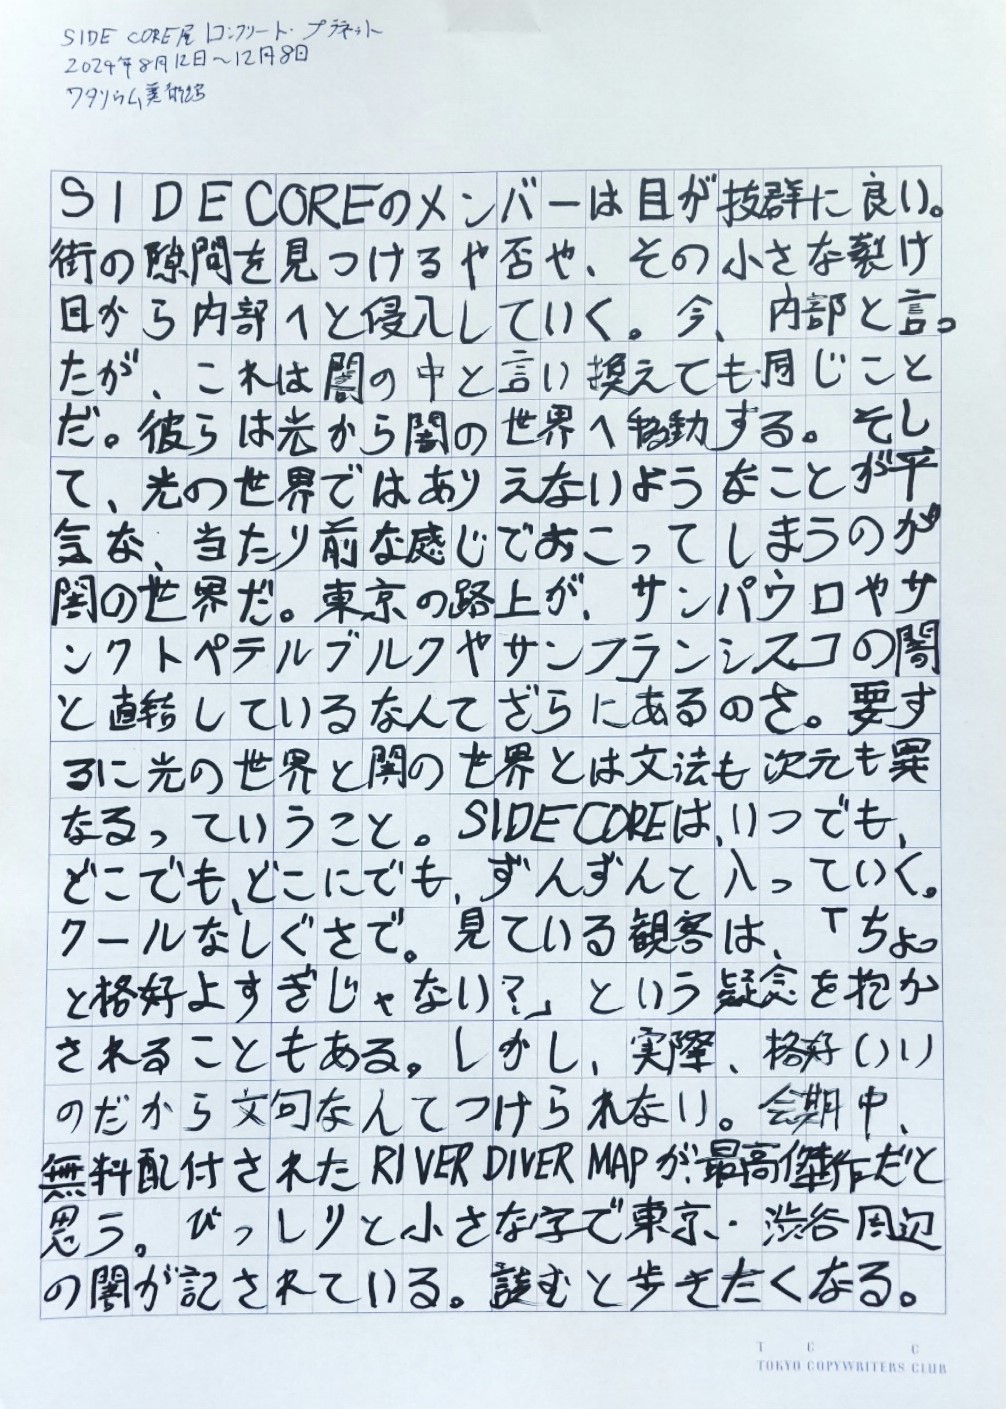 SIDE CORE展 コンクリート・プラネット
2024年8月12日〜12月8日
ワタリウム美術館
SIDE COREのメンバーは目が抜群に良い。
街の隙間を見つけるや否や、その小さな裂け
目から内部へと侵入していく。今、内部と言っ
たが、これは闇の中と言い換えても同じこと
だ。彼らは光から闇の世界へ移動する。そし
て、光の世界ではありえないようなことが平
気な、当たり前な感じでおこってしまうのが
闇の世界だ。東京の路上が、サンパウロやサ
ンクトペテルブルクやサンフランシスコの闇
と直結しているなんてざらにあるのさ。要す
るに光の世界と闇の世界とは文法も次元も異
なるっていうこと。SIDE COREは、いつでも、
どこでも、どこにでも、ずんずんと入っていく。
クールなしぐさで。見ている観客は、「ちょっ
と格好よすぎじゃない?」という疑念を抱か
されることもある。しかし、実際、格好いい
のだから文句なんてつけられない。会期中、
無料配付されたRIVER DIVER MAPが、最高傑作だと
思う。びっしりと小さな字で東京・渋谷周辺
の闇が記されている。読むと歩きたくなる。
T C C
TOKYO COPYWRITERS CLUB